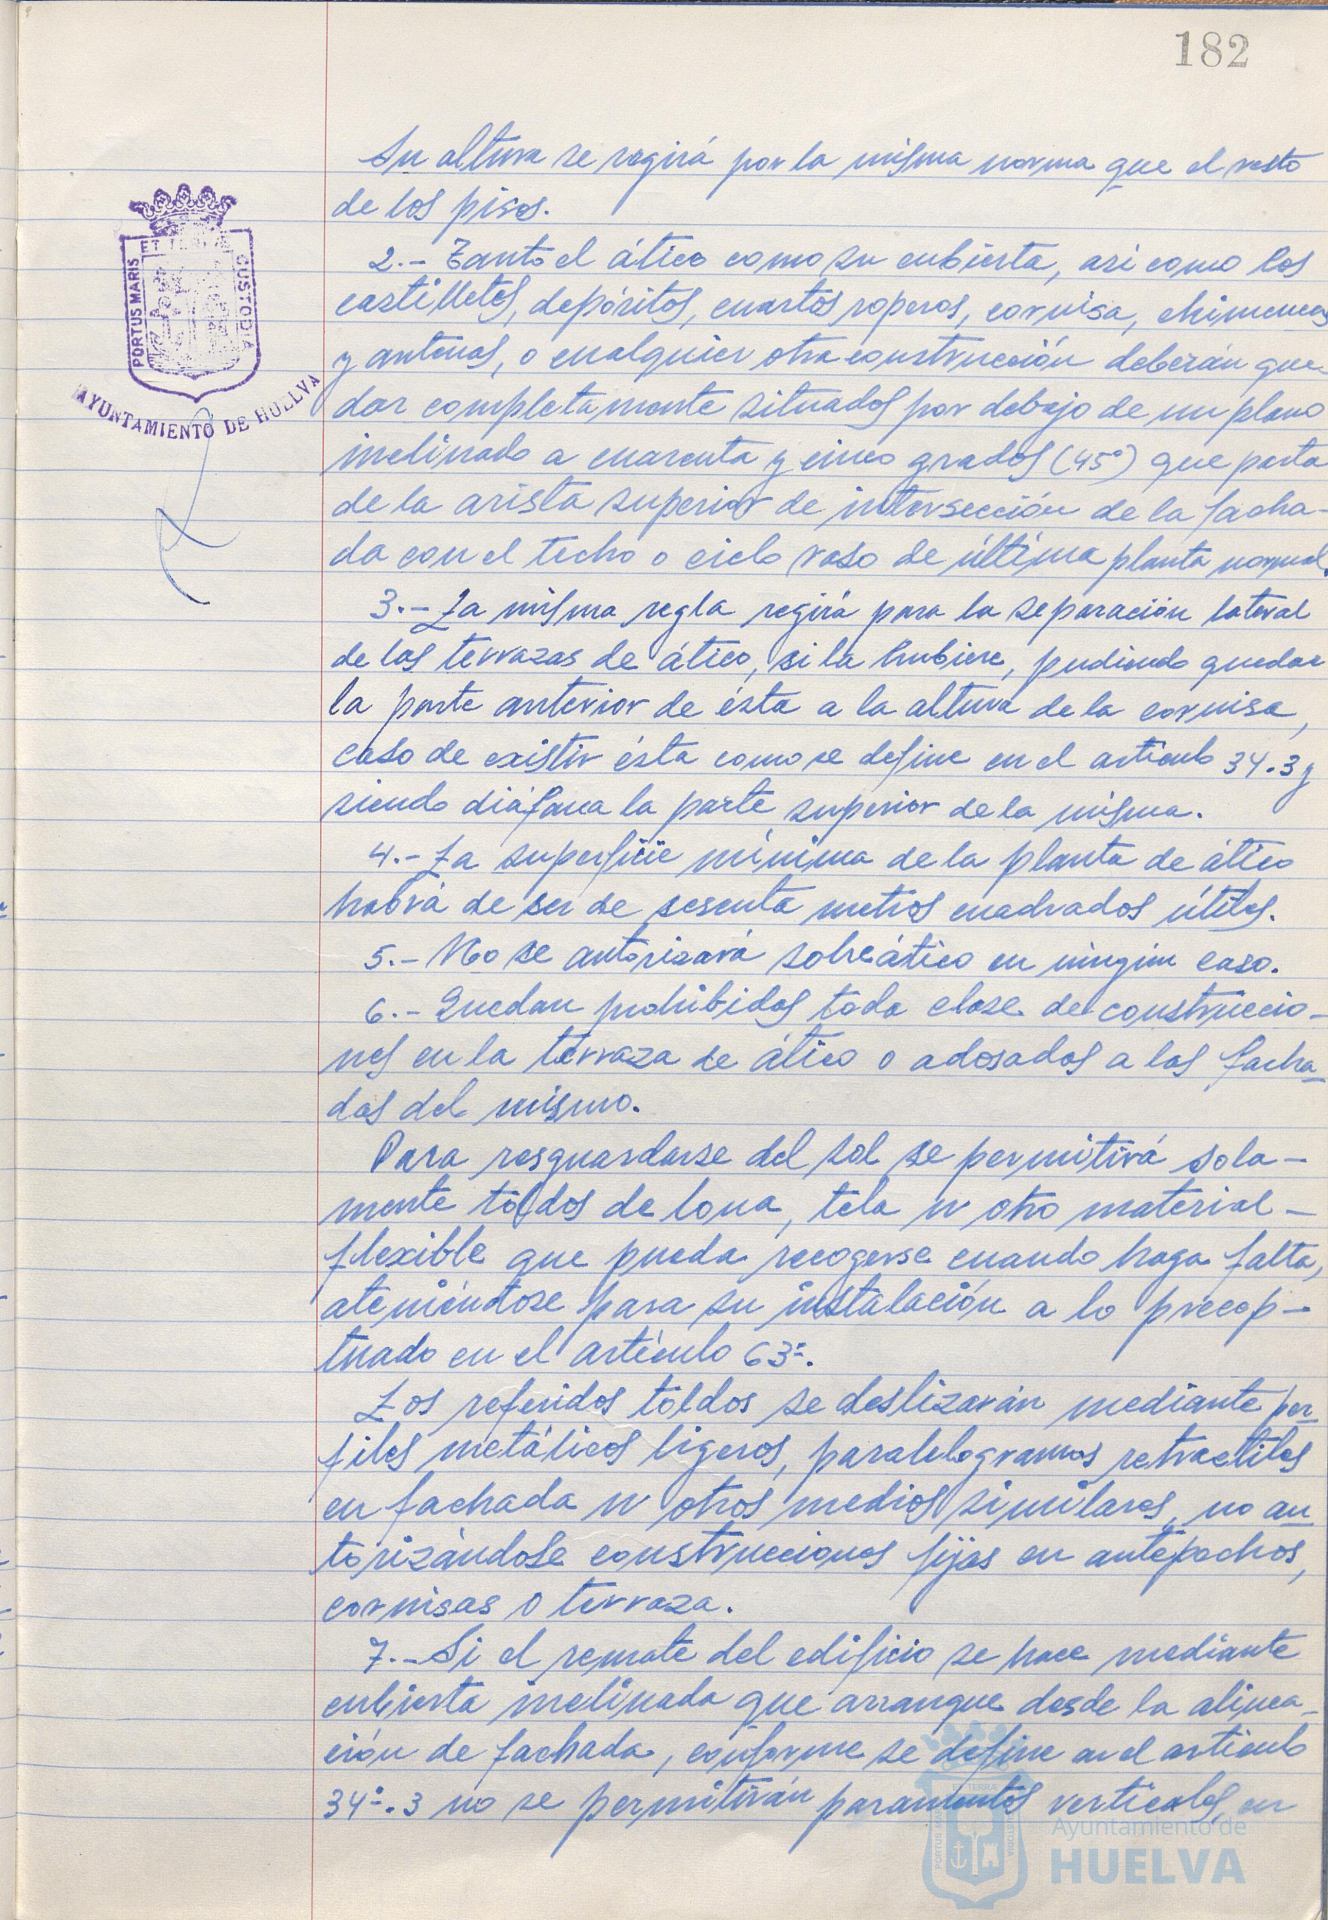 182
Su altura se regirá por la misma norma que el resto
de los pisos.
2.- Tanto el ático como su cubierta, así como los
castilletes, depósitos, cuartos roperos, cornisa, chimeneas
y antenas, o cualquier otra construcción deberán que-
dar completamente situados por debajo de un plano
inclinado a cuarenta y cinco grados (45º) que parta
de la arista superior de intersección de la facha-
da con el techo o cielo raso de última planta normal.
3.- La misma regla regirá para la separación lateral
de las terrazas de ático, si la hubiere, pudiendo quedar
la parte anterior de ésta a la altura de la cornisa,
caso de existir ésta como se define en el artículo 34.3 y
siendo diáfana la parte superior de la misma.
4.- La superficie mínima de la planta de ático
habrá de ser de sesenta metros cuadrados útiles.
5.- No se autorizará sobreático en ningún caso.
6.- Quedan prohibidos toda clase de construccio-
nes en la terraza de ático o adosados a las facha-
das del mismo.
Para resguardarse del sol se permitirá sola-
mente toldos de lona, tela u otro material-
flexible que pueda recogerse cuando haga falta,
ateniéndose para su instalación a lo precep-
tuado en el artículo 63º.
Los referidos toldos se deslizarán mediante per-
files metálicos ligeros, paralelogramos retractiles
en fachada u otros medios similares, no au-
torizándose construcciones fijas en antepechos,
cornisas o terraza.
7.- Si el remate del edificio se hace mediante
cubierta inclinada que arranque desde la alinea-
ción de fachada, conforme se define en el artículo
34º.3 no se permitirán paramentos verticales, en
PORTUS MARIS ET TERRAE CUSTODIA
AYUNTAMIENTO DE HUELVA
Ayuntamiento de
HUELVA